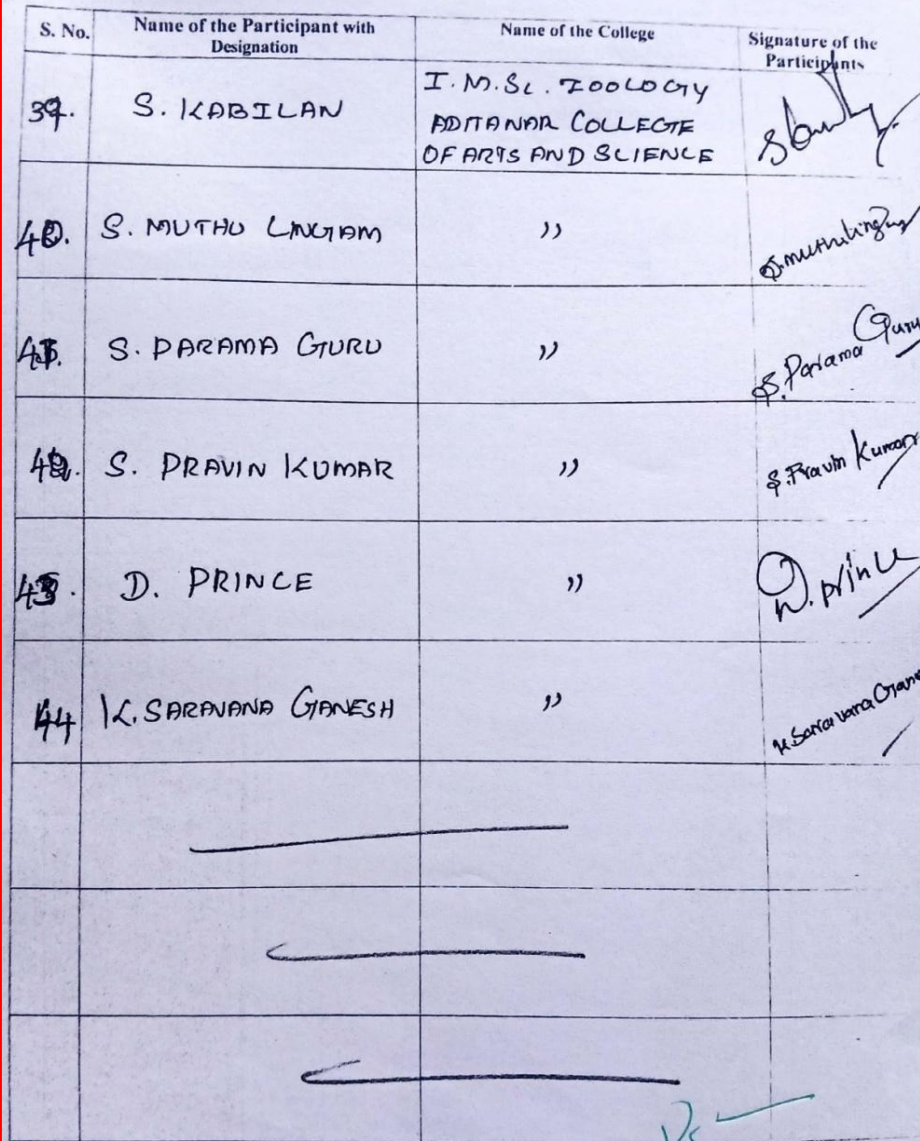 S. No. Name of the Participant with Designation Name of the College Signature of the Participants
39. S. KABILAN I. M. Sc. ZOOLOGY
ADITANAR COLLEGE
OF ARTS AND SCIENCE
40. S. MUTHU LINGAM " S. muthulingam
41. S. PARAMA GURU " S. Parama Guru
42. S. PRAVIN KUMAR " S. Pravin Kumar
43. D. PRINCE " D. prince
44 K. SARAVANA GANESH " K Saravana Gane